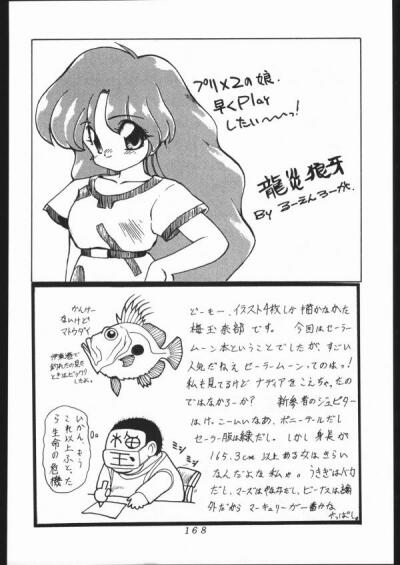 プリメ2の娘.
早くPlay
したい〜〜っ!
龍炎狼牙
By るーえんろーが.
かんけー
ないけど
マトウダイ
伊東港で
釣れたの見た
ときはビックリ
したよ。
どーもー、イラスト4枚しか描かなかった
梅玉奈部です。 今回はセーラー
ムーン本ということでしたが、すごい
人気だねえ セーラームーンってのはっ!
私も見てるけど ナディアをこえちゃったの
ではなかろーか? 新参者のジュピター
はけっこーいいなあ、ポニーテールだし
セーラー服は緑だし。 しかし身長が
165.3cm以上ある女はきらい
なんだよな 私ゃ。 うさぎはバカ
だし、マーズは だし、ビーナスは論
外だから マーキュリーが一番かな
やっぱし。
いかん、もう
これ以上ふとった
ら生命の危機
梅玉
ミシ
ミシ
168